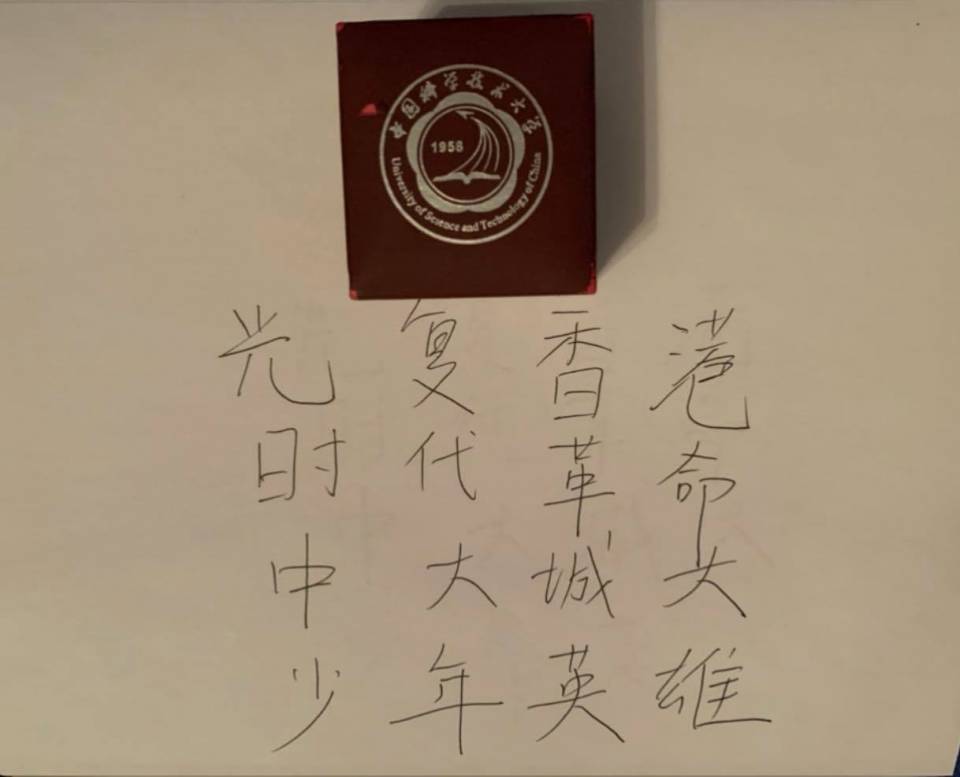 中国科学技术大学
1958
University of Science and Technology of China
光复香港
时代革命
中大城大
少年英雄